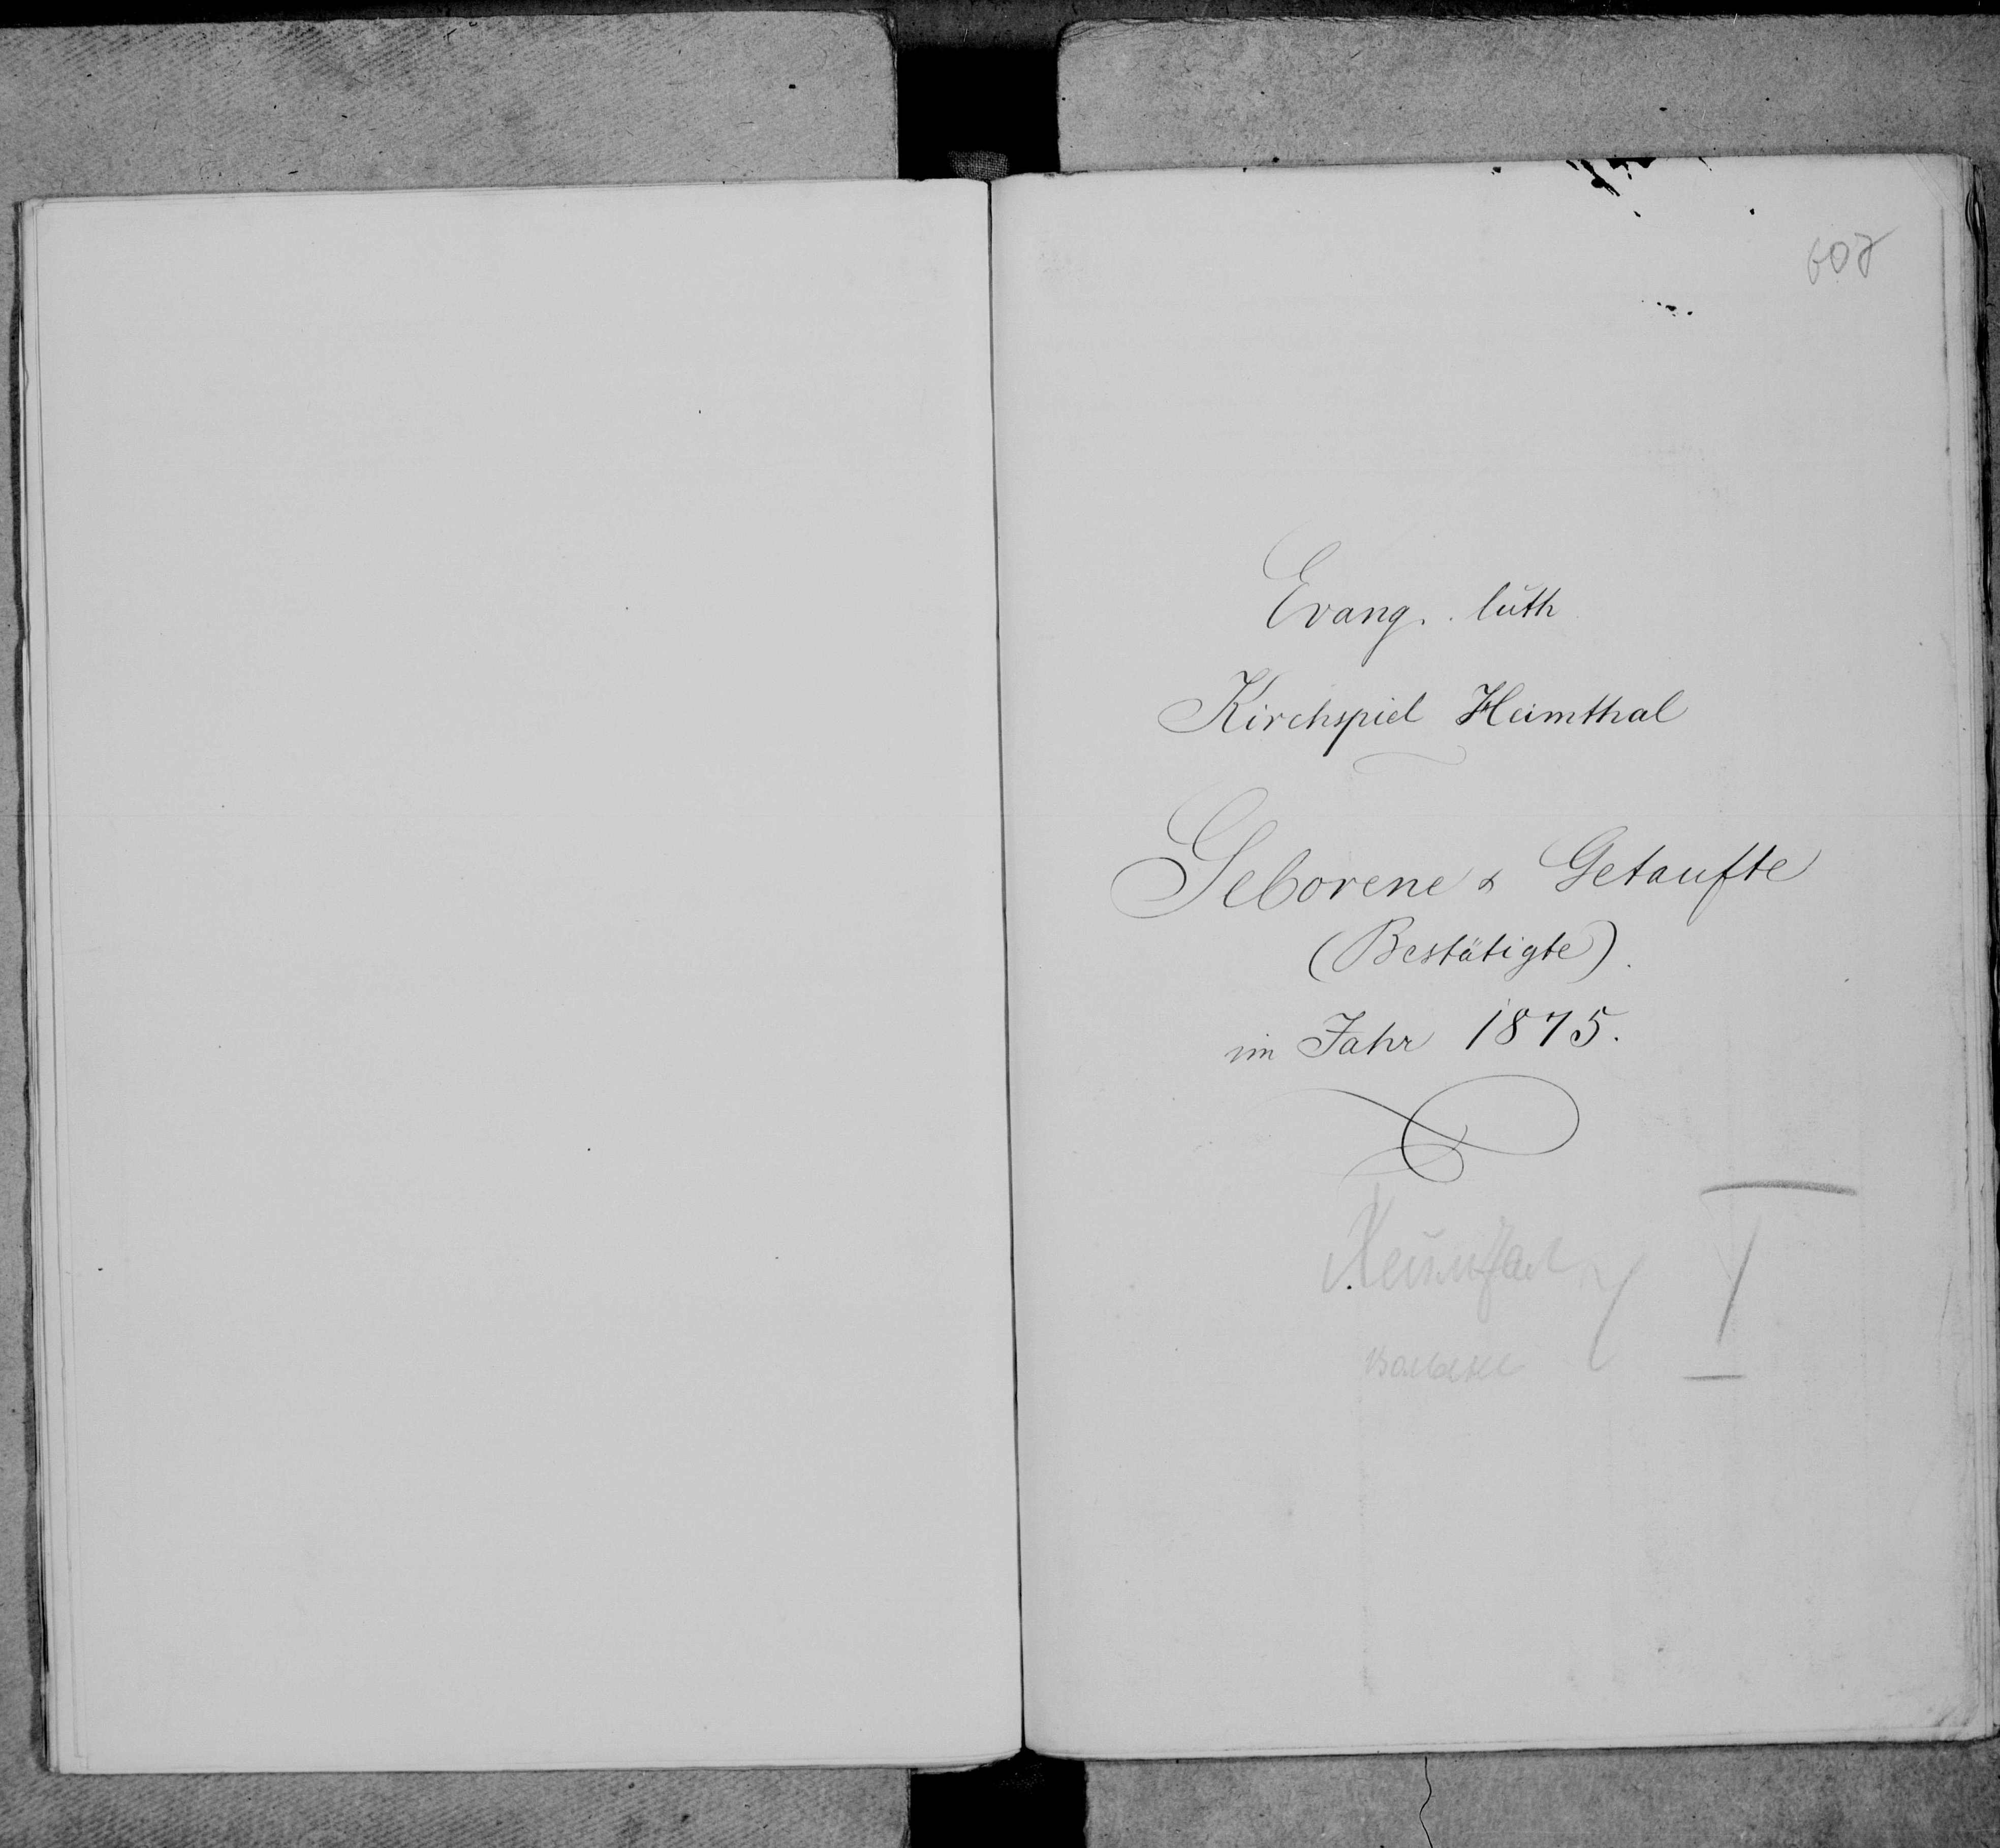 Evang. luth
Kirchspiel Heimthal
Geborene & Getaufte
(Bestätigte).
im Jahr 1875.
I